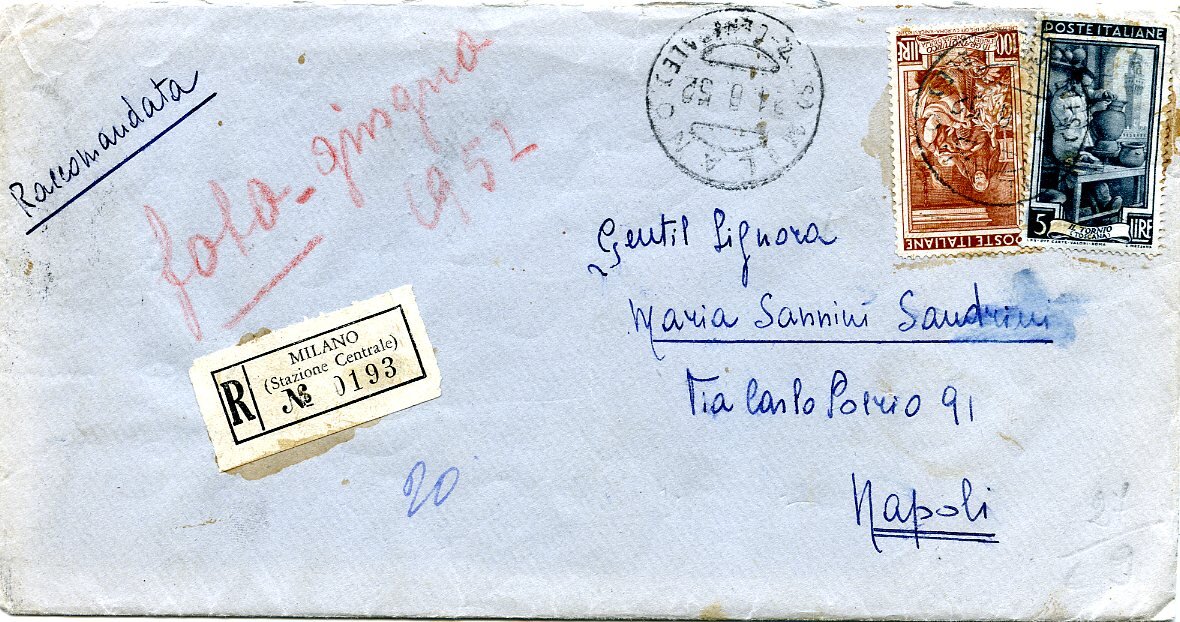 Raccomandata
foto-giugno
1952
MILANO
(Stazione Centrale)
R
№ 0193
20
MILANO
8 52
100 LIRE
POSTE ITALIANE
POSTE ITALIANE
5 LIRE
IL TORNIO
(TOSCANA)
Gentil Signora
Maria Sannini Sandrini
Via Carlo Poerio 91
Napoli